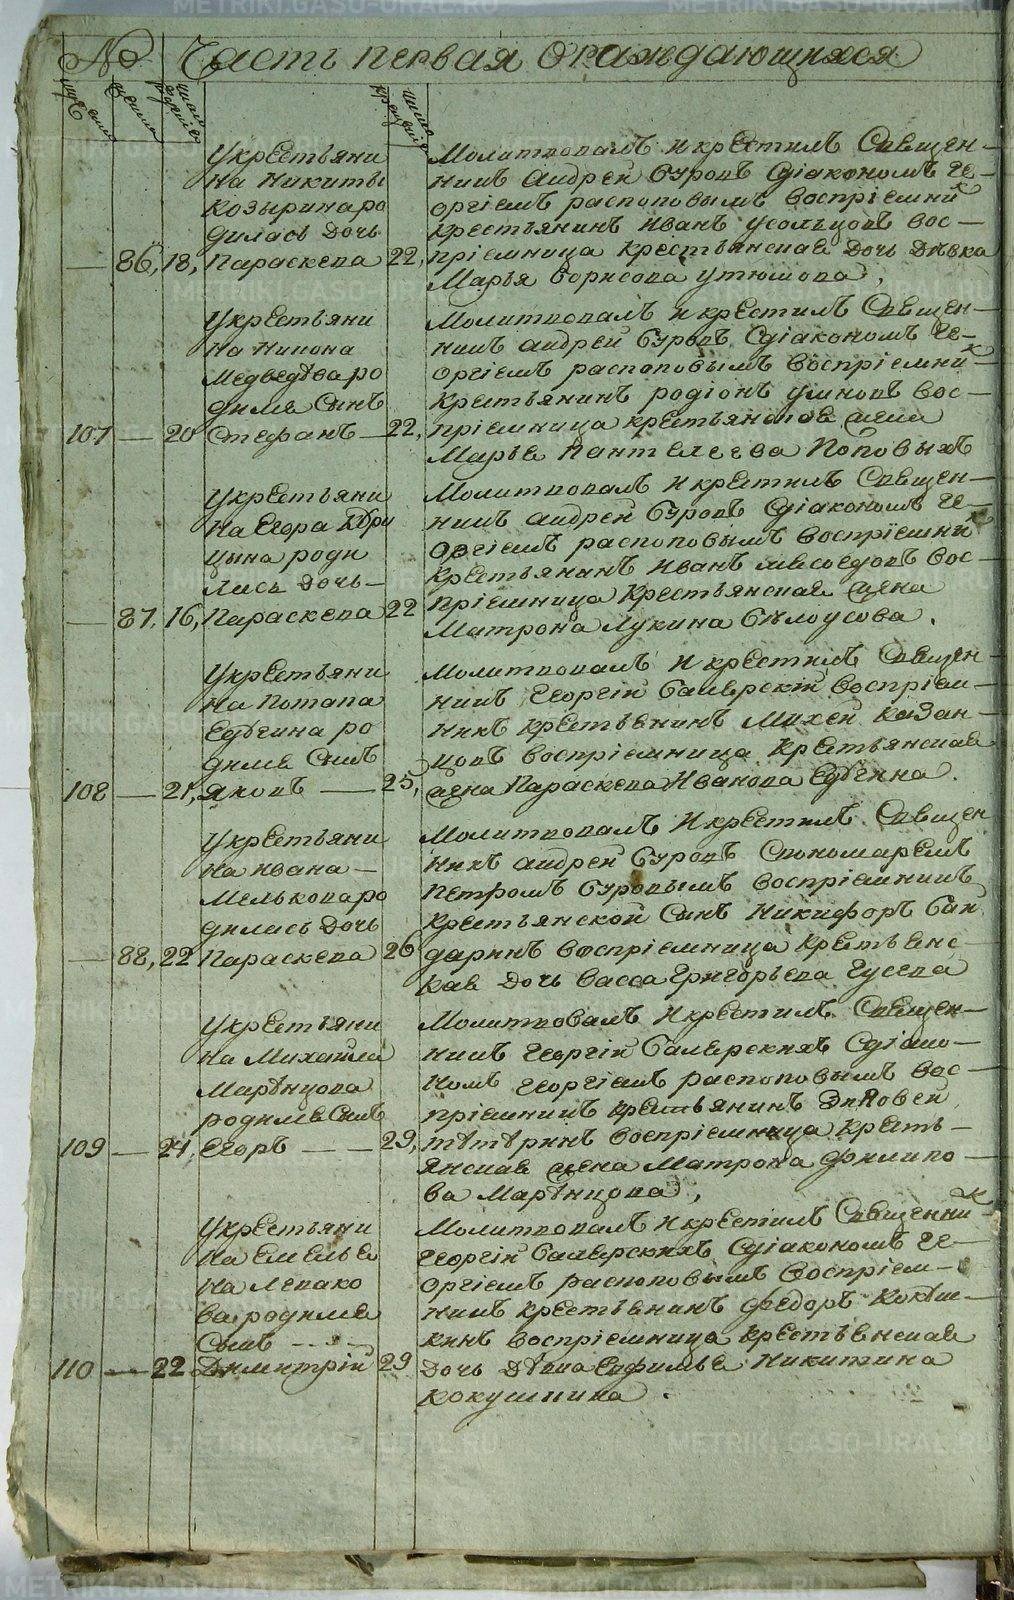 № Часть первая ораждающихся
муж ческа
женска
число рожденія
число крещенія
У крестьяни
на Никиты
Козырина ро
дилась дочь
— 86, 18, Параскева 22,
Молитвовалъ и крестилъ Священ-
никъ Андрей Буровъ Сдіакономъ Ге-
оргіемъ распоповымъ воспріемник
крестьянинъ Иванъ Усольцовъ вос-
пріемница крестьянская дочь дѣвка
Марья Борисова Утюмова,
У крестьяни
на Никона
Медведѣва ро
дился Сынъ
107 — 20 Стефанъ — 22,
Молитвовалъ и крестилъ Священ-
никъ Андрей Буровъ Сдіакономъ Ге-
оргіемъ распоповымъ воспріемник
крестьянинъ родіонъ Умновъ вос-
пріемница крестьянская жена
Марья Пантелеева Поповыхъ
У крестьяни
на Егора
цына роди
лась дочь —
— 87, 16, Параскева 22
Молитвовалъ и крестилъ Священ-
никъ Андрей Буровъ Сдіакономъ Ге-
оргіемъ распоповымъ воспріемник
крестьянинъ Иванъ Мясоедовъ вос-
пріемница крестьянская жена
Матрона Лукина Бѣлоусова.
У крестьяни
на Потапа
ро
дился Сынъ
108 — 21, Яковъ — 25,
Молитвовалъ и крестилъ Священ
никъ Георгій воспріем-
никъ крестьянинъ Михей Казан-
цовъ воспріемница крестьянская
жена Параскева Иванова
У крестьяни
на Ивана —
Мелькова ро
дилась дочь
— 88, 22 Параскева 26
Молитвовалъ и крестилъ Священ
никъ Андрей Буровъ Спономаремъ
Петромъ Буровымъ воспріемникъ
крестьянской Сынъ Никифоръ Бан
даринъ воспріемница крестьянс
кая дочь Васса Григорьева Гусева
У крестьяни
на Михаила
Марѣнцова
родился Сынъ
109 — 24, Егоръ — — 29,
Молитвовалъ и крестилъ Священ-
никъ Георгій Сдіако-
номъ Георгіемъ распоповымъ вос-
пріемникъ крестьянинъ
тѣтѣринъ воспріемница кресть-
янская жена Матрона Филипо-
ва Марѣнцова,
У крестьяни
на Емелья
на Лепако
ва родился
Сынъ
110 — 22 Димитрій 29
Молитвовалъ и крестилъ Священник
Георгій Сдіакономъ Ге-
оргіемъ распоповымъ воспріем-
никъ крестьянинъ Федоръ Кокш-
кинъ воспріемница крестьянская
дочь дѣвка Евфимья Никитина
Кокушкина.